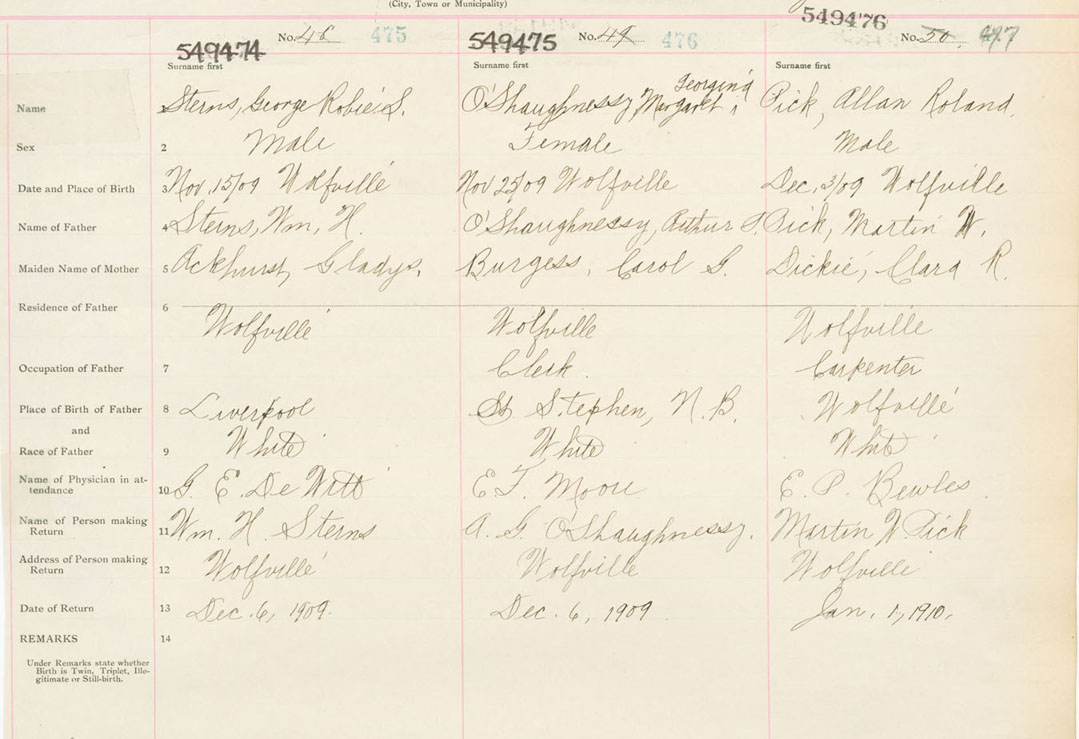 (City, Town or Municipality)
549474 No. 48 475 549475 No. 49 476 549476 No. 50. 477
Surname first Surname first Surname first
Georgina
Name 1 Sterns, George Robie S. O'Shaughnessy, Margaret Pick, Allan Roland.
Sex 2 Male Female Male
Date and Place of Birth 3 Nov. 15/09 Wolfville Nov 25/09 Wolfville Dec. 3/09 Wolfville
Name of Father 4 Sterns, Wm. H. O'Shaughnessy, Arthur Pick, Martin W.
Maiden Name of Mother 5 Ackhurst, Gladys. Burgess, Carol G. Dickie, Clara R.
Residence of Father 6
Wolfville Wolfville Wolfville
Occupation of Father 7 Clerk. Carpenter
Place of Birth of Father 8 Liverpool St. Stephen, N. B. Wolfville
and
Race of Father 9 White White White
Name of Physician in at-
tendance 10 G. E. De Witt E F. Moore E. P. Bowles
Name of Person making
Return 11 Wm. H Sterns A. G. O'Shaughnessy. Martin W Pick
Address of Person making
Return 12 Wolfville Wolfville Wolfville
Date of Return 13 Dec. 6, 1909. Dec. 6, 1909 Jan. 1, 1910.
REMARKS 14
Under Remarks state whether
Birth is Twin, Triplet, Ille-
gitimate or Still-birth.